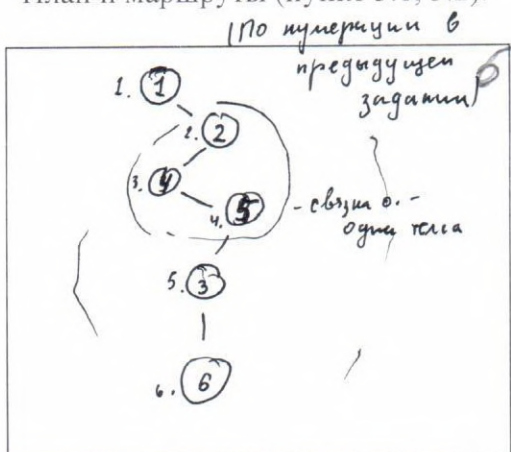 План и маршруты (пункт
(По нумерации в
предыдущем
задании)
1. 1
2. 2
3. 4
4. 5
- связка
одна
5. 3
6. 6